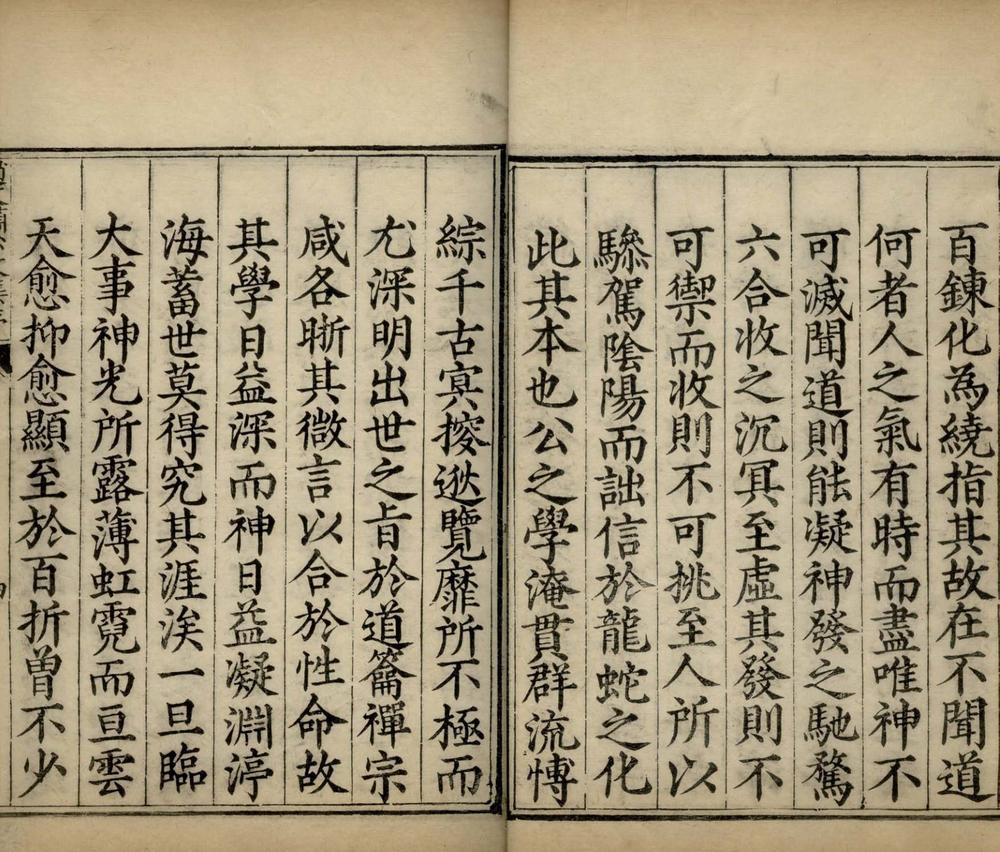 百鍊化為繞指其故在不聞道
何者人之氣有時而盡唯神不
可滅聞道則能凝神發之馳騖
六合收之沉冥至虛其發則不
可禦而收則不可挑至人所以
驂駕陰陽而詘信於龍蛇之化
此其本也公之學淹貫群流愽
綜千古冥搜逖覽靡所不極而
尤深明出世之旨於道籥禪宗
咸各晰其微言以合於性命故
其學日益深而神日益凝淵渟
海蓄世莫得究其涯涘一旦臨
大事神光所露薄虹霓而亘雲
天愈抑愈顯至於百折曾不少